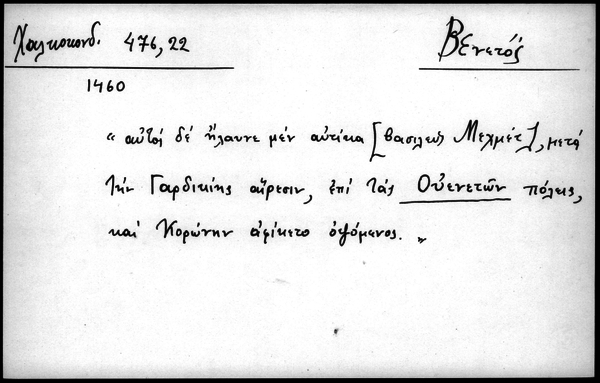 Χαλκοκονδ. 476, 22
Βενετός
1460
“ αὐτοὶ δέ ἤλαυνε μέν αὐτίκα [βασιλεὺς Μεχμέτ], μετά
τήν Γαρδικίης αἵρεσιν, ἐπί τάς Οὐενετῶν πόλεις,
καί Κορώνην ἀφίκετο ὀψόμενος. „